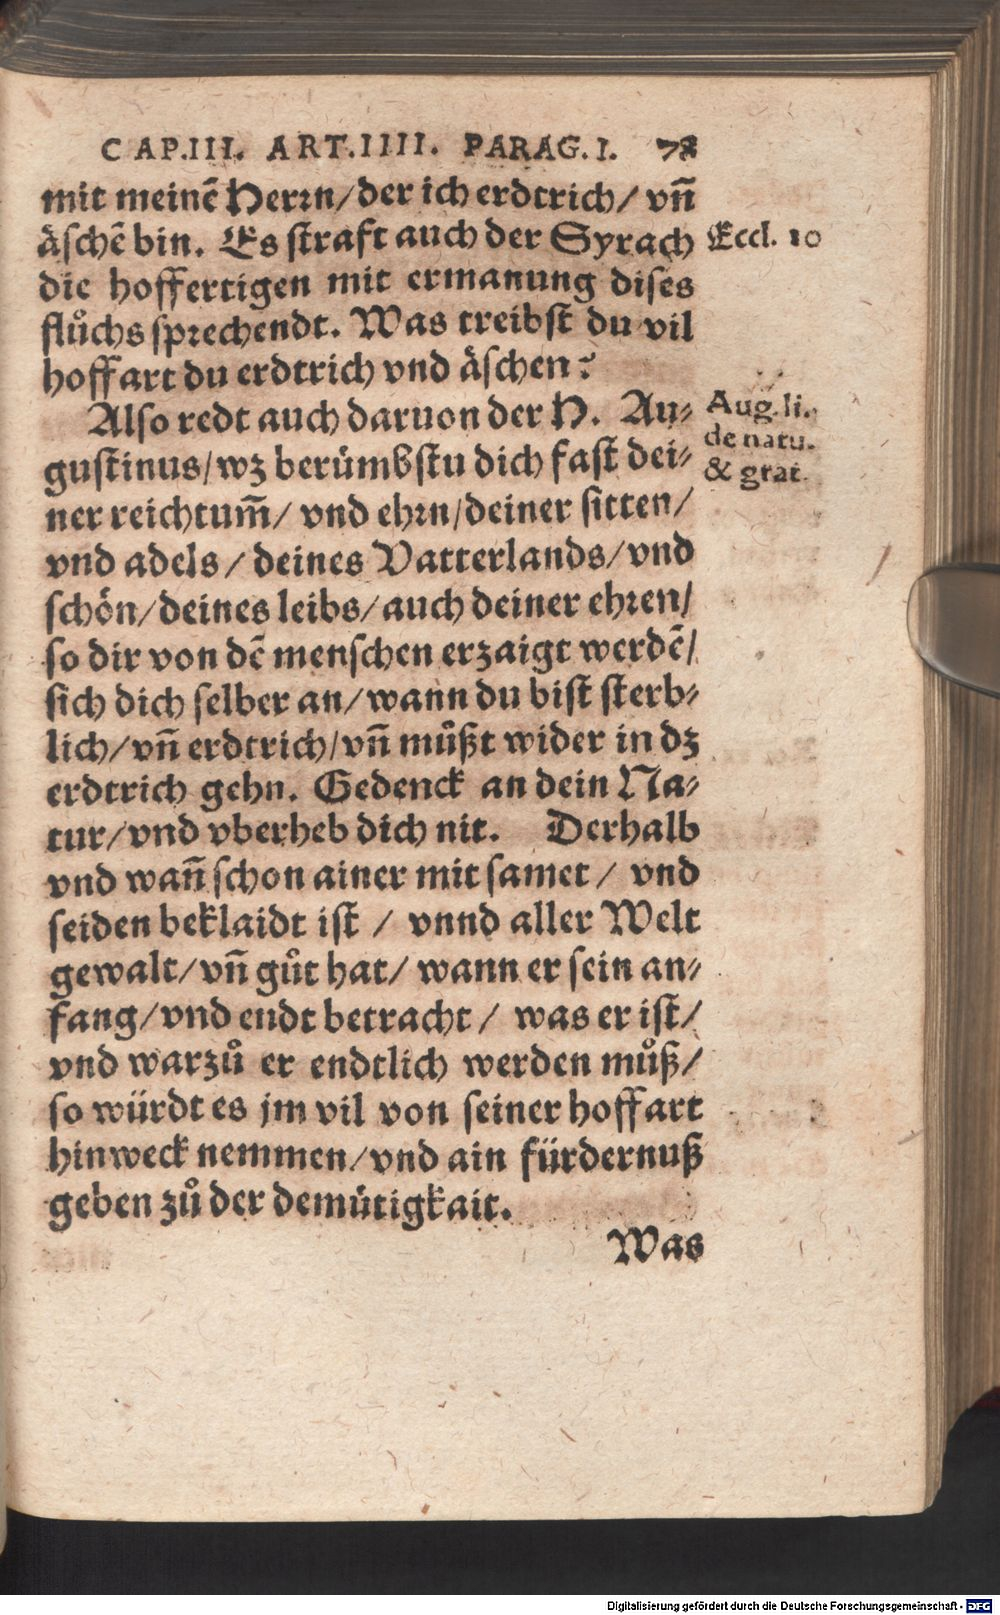 CAP.III. ART.IIII. PARAG.I. 78
mit meinē Herrn/der ich erdtrich/ vñ
äschē bin. Es straft auch der Syrach
Eccl. 10
die hoffertigen mit ermanung dises
flůchs sprechendt. Was treibst du vil
hoffart du erdtrich vnd äschen?
Also redt auch daruon der H. Au-
Aug. li.
de natu.
& grat.
gustinus/wz berümbstu dich fast dei-
ner reichtum̃/ vnd ehrn/deiner sitten/
vnd adels/ deines Vatterlands/vnd
schön/deines leibs/auch deiner ehren/
so dir von dē menschen erzaigt werdē/
sich dich selber an/wann du bist sterb-
lich/vñ erdtrich/vñ můßt wider in dz
erdtrich gehn. Gedenck an dein Na-
tur/vnd vberheb dich nit. Derhalb
vnd wañ schon ainer mit samet/ vnd
seiden beklaidt ist / vnnd aller Welt
gewalt/vñ gůt hat/ wann er sein an-
fang/vnd endt betracht/ was er ist/
vnd warzů er endtlich werden můß/
so würdt es jm vil von seiner hoffart
hinweck nemmen/vnd ain fürdernuß
geben zů der demütigkait.
Was
Digitalisierung gefördert durch die Deutsche Forschungsgemeinschaft - DFG